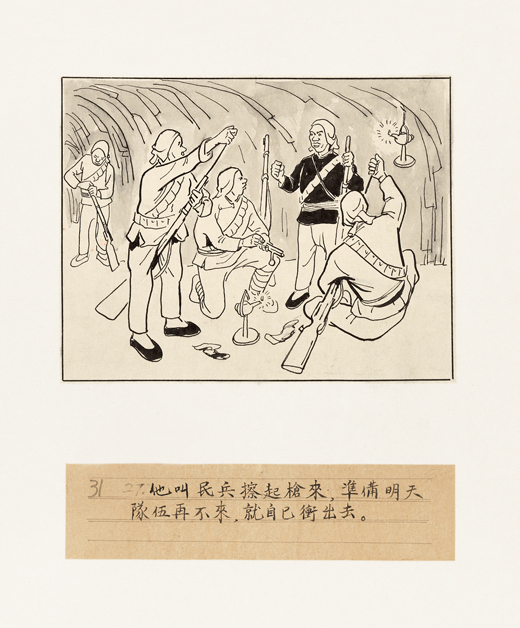 31 27. 他叫民兵擦起槍來，準備明天
隊伍再不來，就自己衝出去。